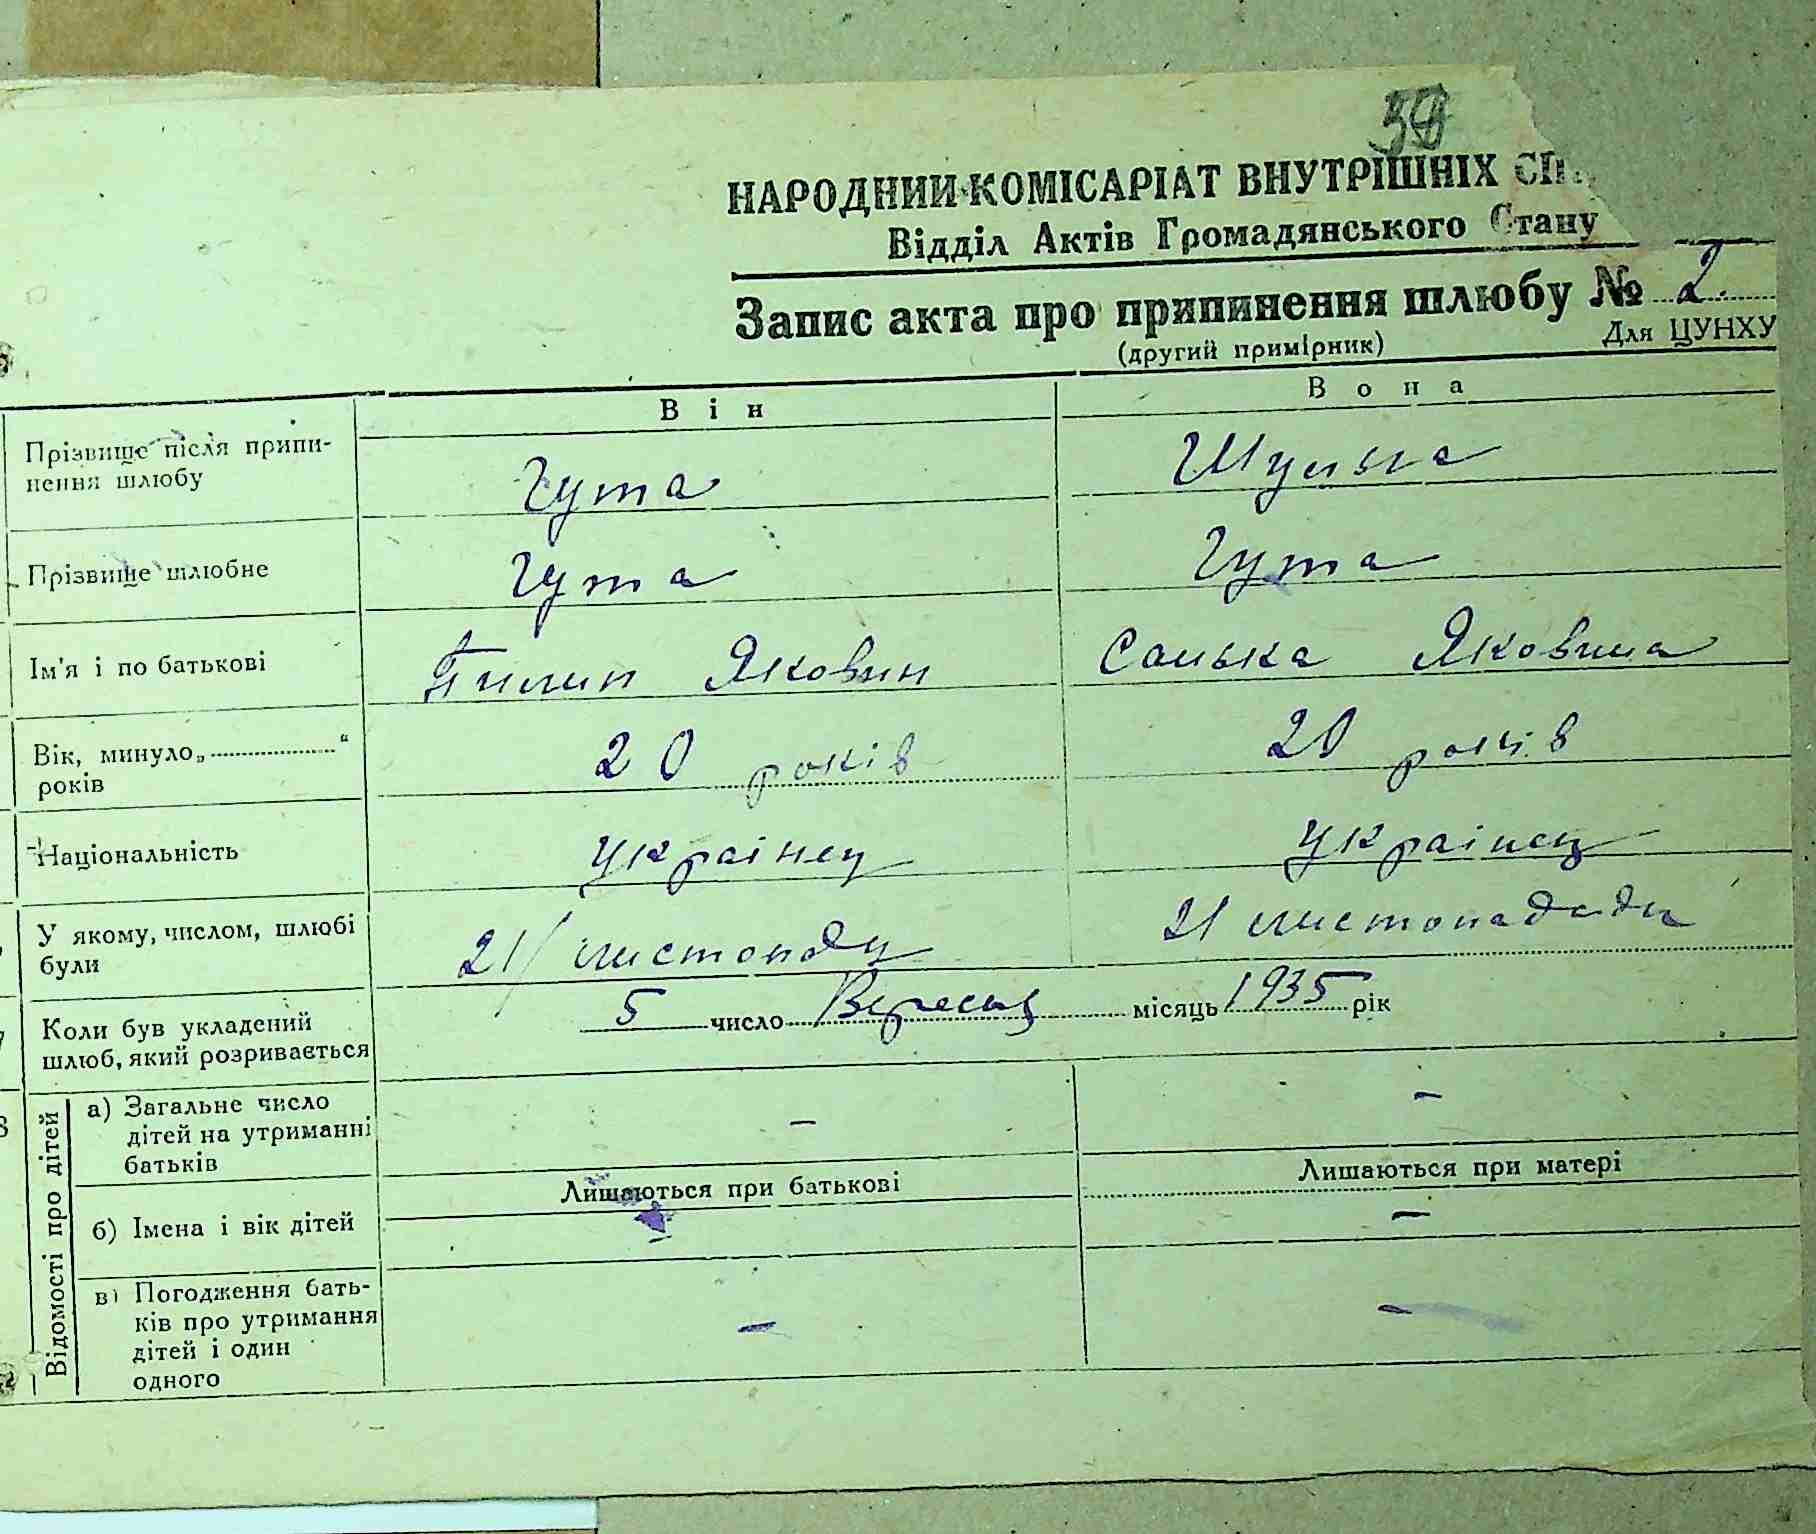 59
НАРОДНИЙ КОМІСАРІАТ ВНУТРІШНІХ СП
Відділ Актів Громадянського Стану
Запис акта про припинення шлюбу № 2.
(другий примірник) Для ЦУНХУ
Він Вона
Прізвище після припи-
нення шлюбу Гута Шульга
Прізвище шлюбне Гута Гута
Ім'я і по батькові Пилип Якович Санька Яковина
Вік, минуло „ “
років 20 років 20 років
Національність Українец Українец
У якому, числом, шлюбі
були 21/ листопаду 21 листопададу
Коли був укладений
шлюб, який розривається 5 число Вересня місяць 1935 рік
Відомості про дітей
а) Загальне число
дітей на утриманні
батьків – –
Лишаються при батькові Лишаються при матері
б) Імена і вік дітей – –
в) Погодження бать-
ків про утримання
дітей і один
одного – –